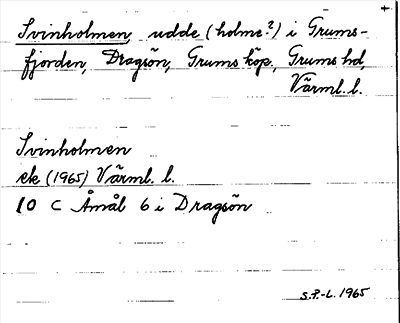 +
Svinholmen, udde (holme?) i Grums-
fjorden, Dragsön, Grums köp., Grums hd,
Värml. l.
Svinholmen
ek (1965) Värml. l.
10 C Åmål 6 i Dragsön
S.P.-L. 1965